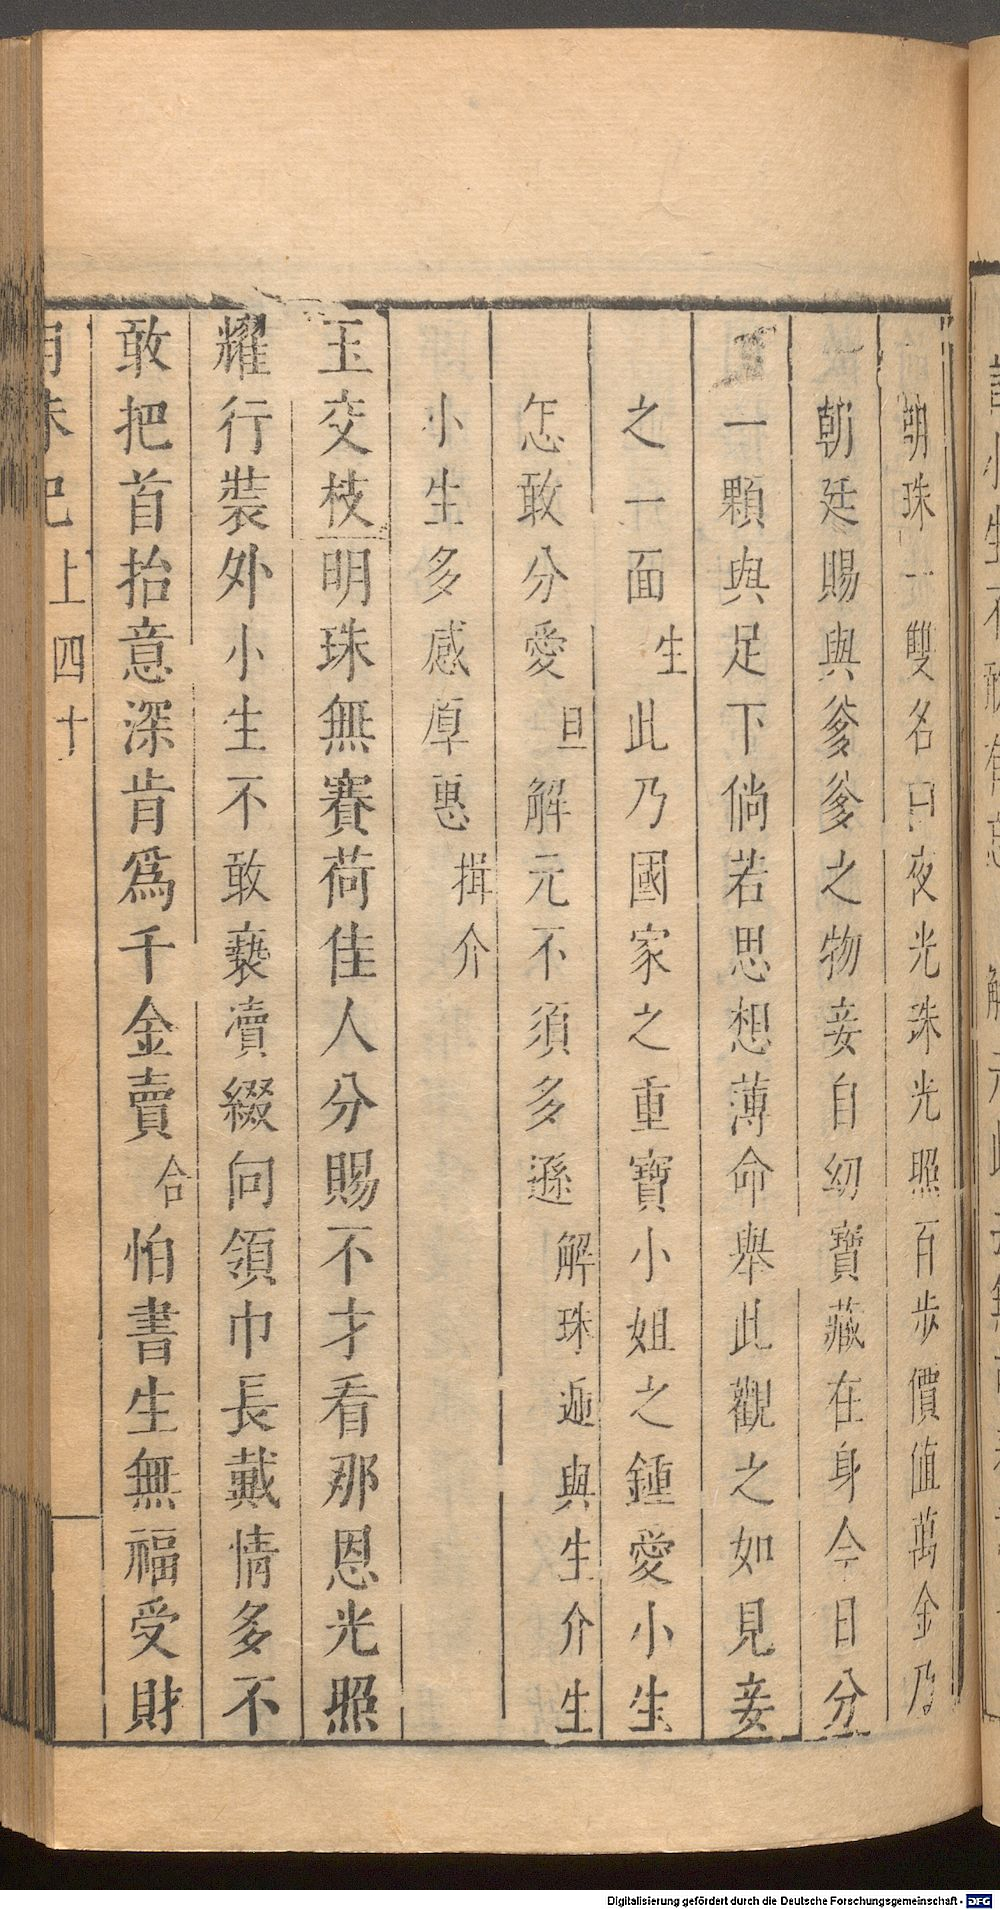 朝珠一雙名曰夜光珠光照百步價值萬金乃
朝廷賜與爹爹之物妾自幼寶藏在身今日分
一顆與足下倘若思想薄命舉此觀之如見妾
之一面生此乃國家之重寶小姐之鍾愛小生
怎敢分愛旦解元不須多遜解珠遞與生介生
小生多感厚惠揖介
玉交枝明珠無賽荷佳人分賜不才看那恩光照
耀行裝外小生不敢褻瀆綴向領巾長戴情多不
敢把首抬意深肯爲千金賣合怕書生無福受財
明珠記上四十
Digitalisierung gefördert durch die Deutsche Forschungsgemeinschaft - DFG